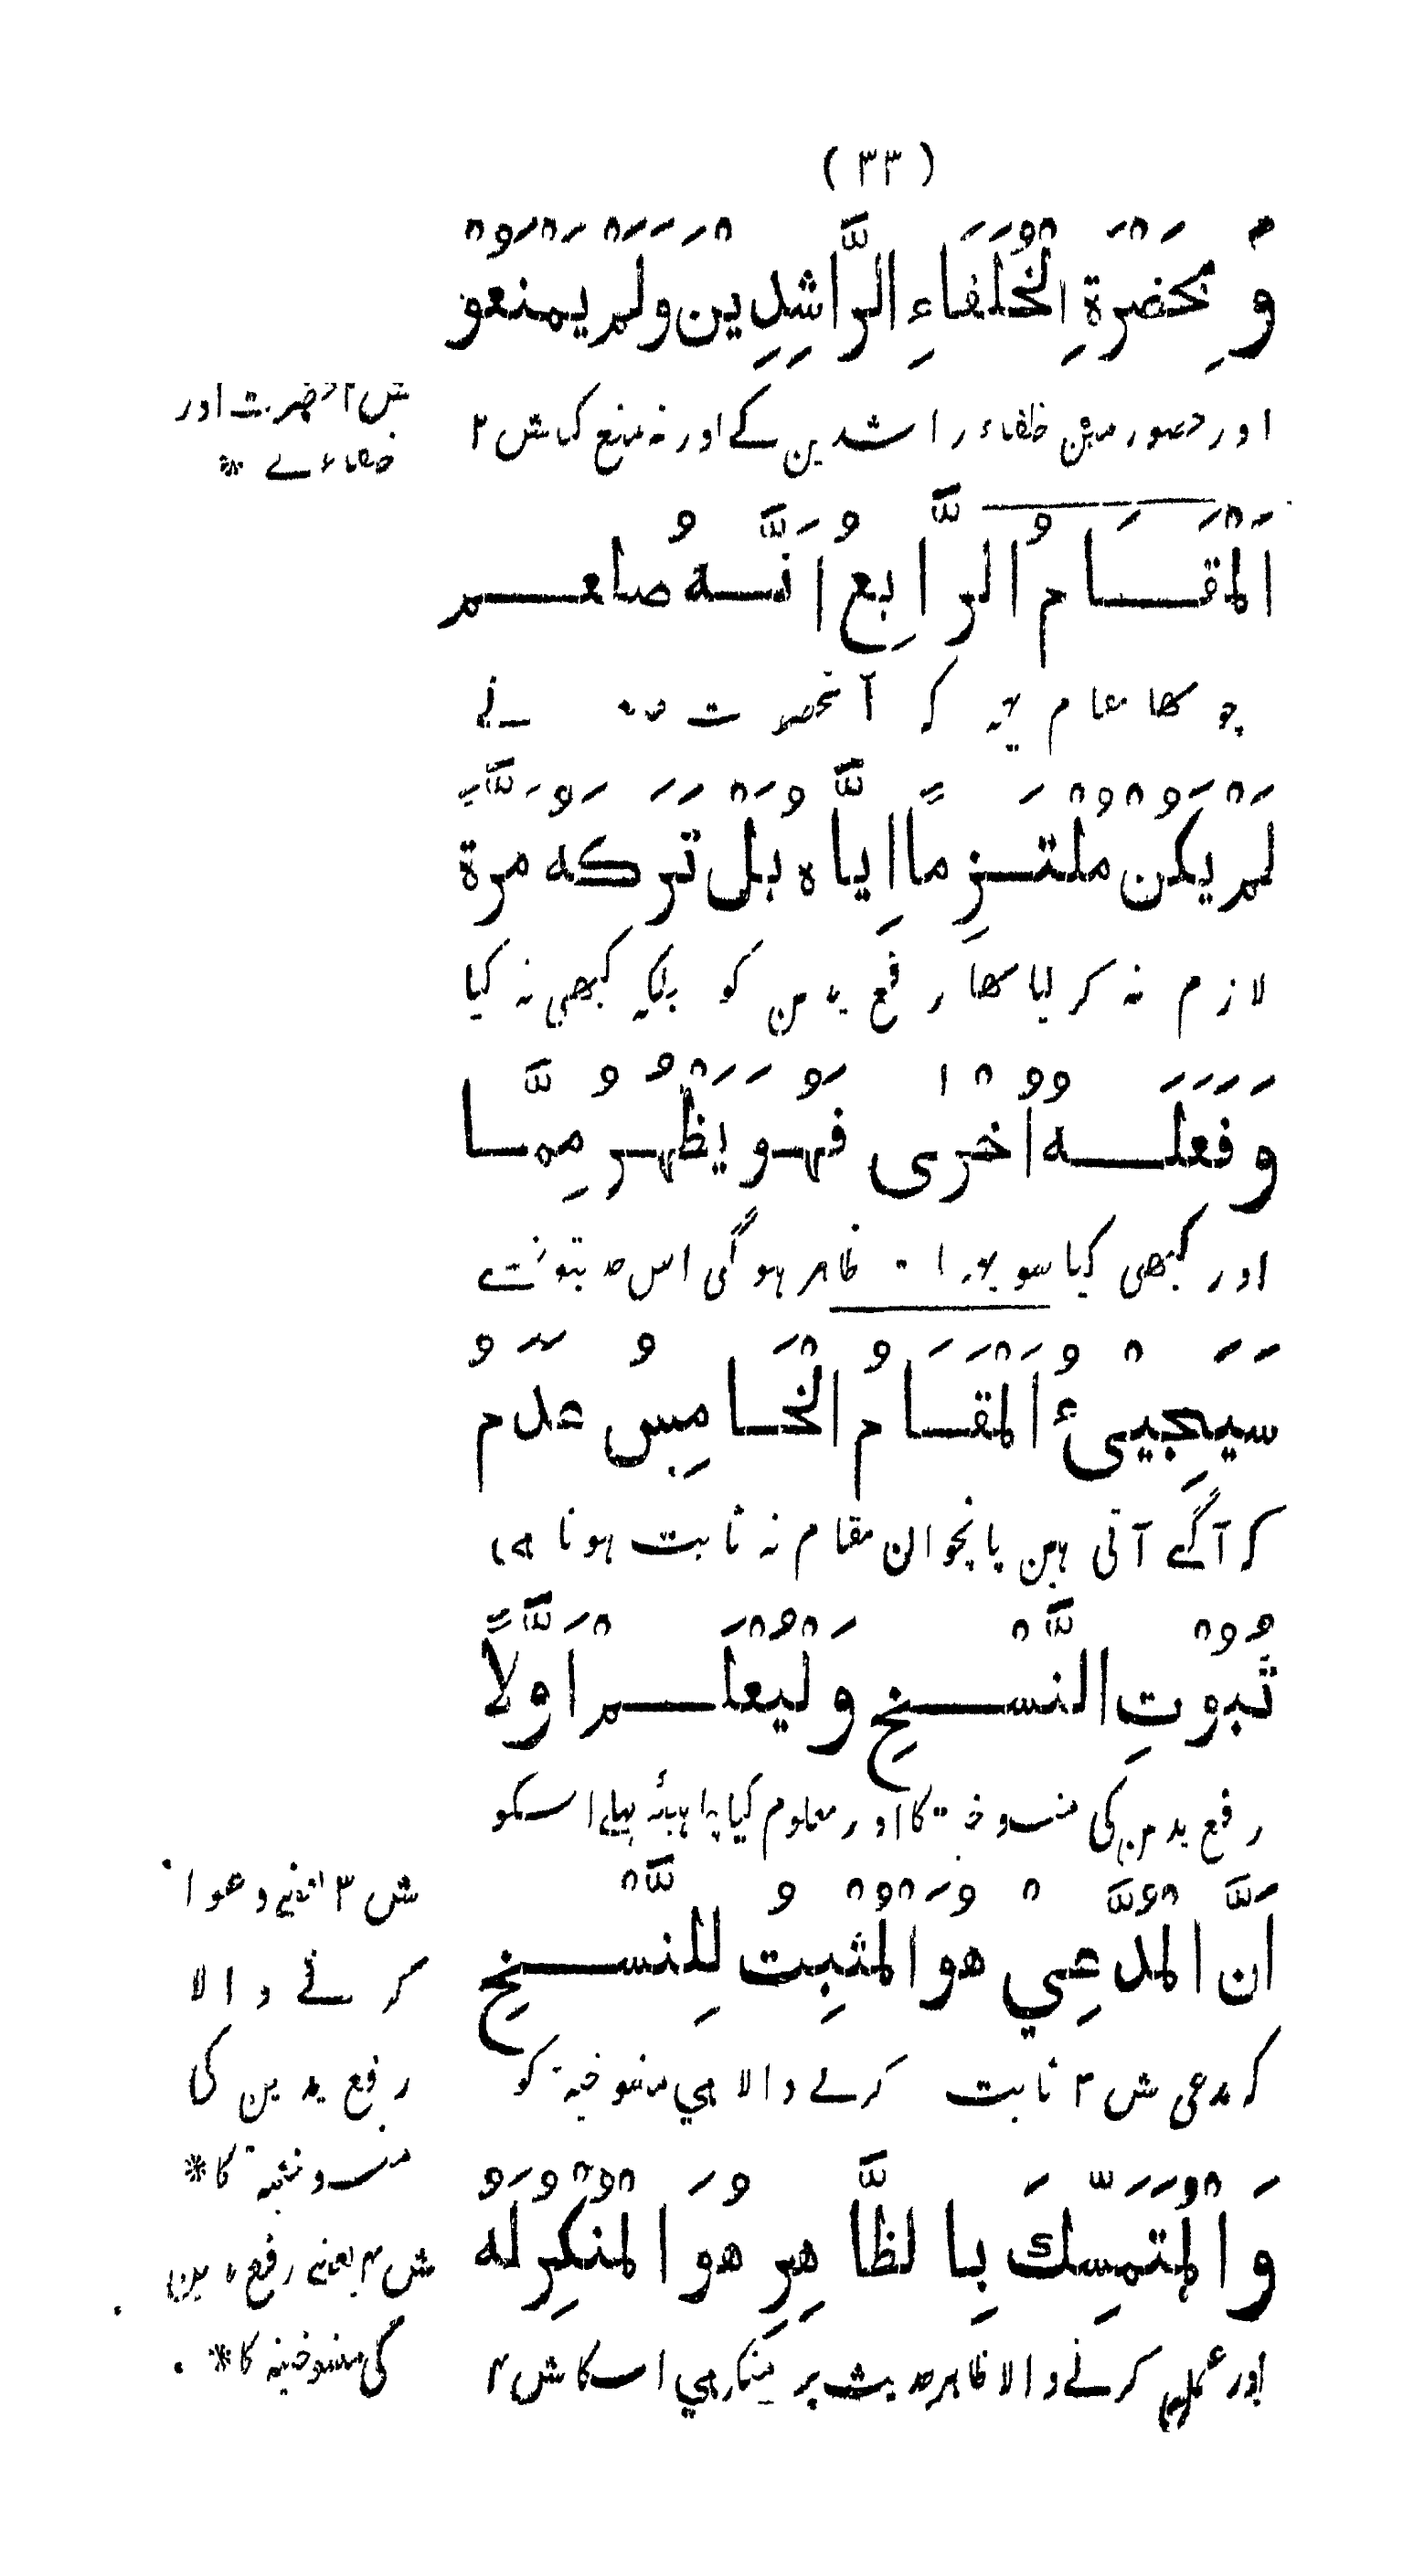 ( ٣٣ )
وَبِحَضْرَةِ الْخُلَفَاءِ الرَّاشِدِيْنَ وَلَمْ يَمْنَعُوْ
اور حضور مین خلفاء راشدین کے اور نہ منع کیا ش ٢
ش ٢ آنحضرت اور
خلفاء نے *
اَلْمَقَامُ الرَّابِعُ اَنَّهُ صلعم
چوتھا مقام یہہ کہ آنحضرت صـ نے
لَمْ يَكُنْ مُلْتَزِمًا اِيَّاهُ بَلْ تَرَكَهُ مَرَّةً
لازم نہ کر لیا تھا رفع یدین کو بلکہ کبھی نہ کیا
وَفَعَلَهُ اُخْرٰى فَهُوَ يَظْهَرُ مِمَّا
اور کبھی کیا سو یہہ بات ظاہر ہوگی اس حدیثونسے
سَيَجِيْئُ اَلْمَقَامُ الْخَامِسُ عَدَمُ
کہ آگے آتی ہین پانچوان مقام نہ ثابت ہونا ہی
ثُبُوْتِ النَّسْخِ وَلْيُعْلَمْ اَوَّلًا
رفع یدین کی منسوخیت کا اور معلوم کیا چاہئے پہلے اسکو
اَنَّ الْمُدَّعِيْ هُوَ الْمُثْبِتُ لِلنَّسْخِ
کہ مدعی ش ٣ ثابت کرنے والا ہي منسوخیة کو
ش ٣ یعنے دعوا
کرنے والا
رفع یدین کی
منسوخیة کا *
وَالْمُتَمَسِّكَ بِالظَّاهِرِ هُوَ الْمُنْكِرُ لَهُ
اور عمل کرنے والا ظاہر حدیث پر منکر ہي اسکا ش ۴
ش ۴ یعنے رفع یدین
کی منسوخیة کا *